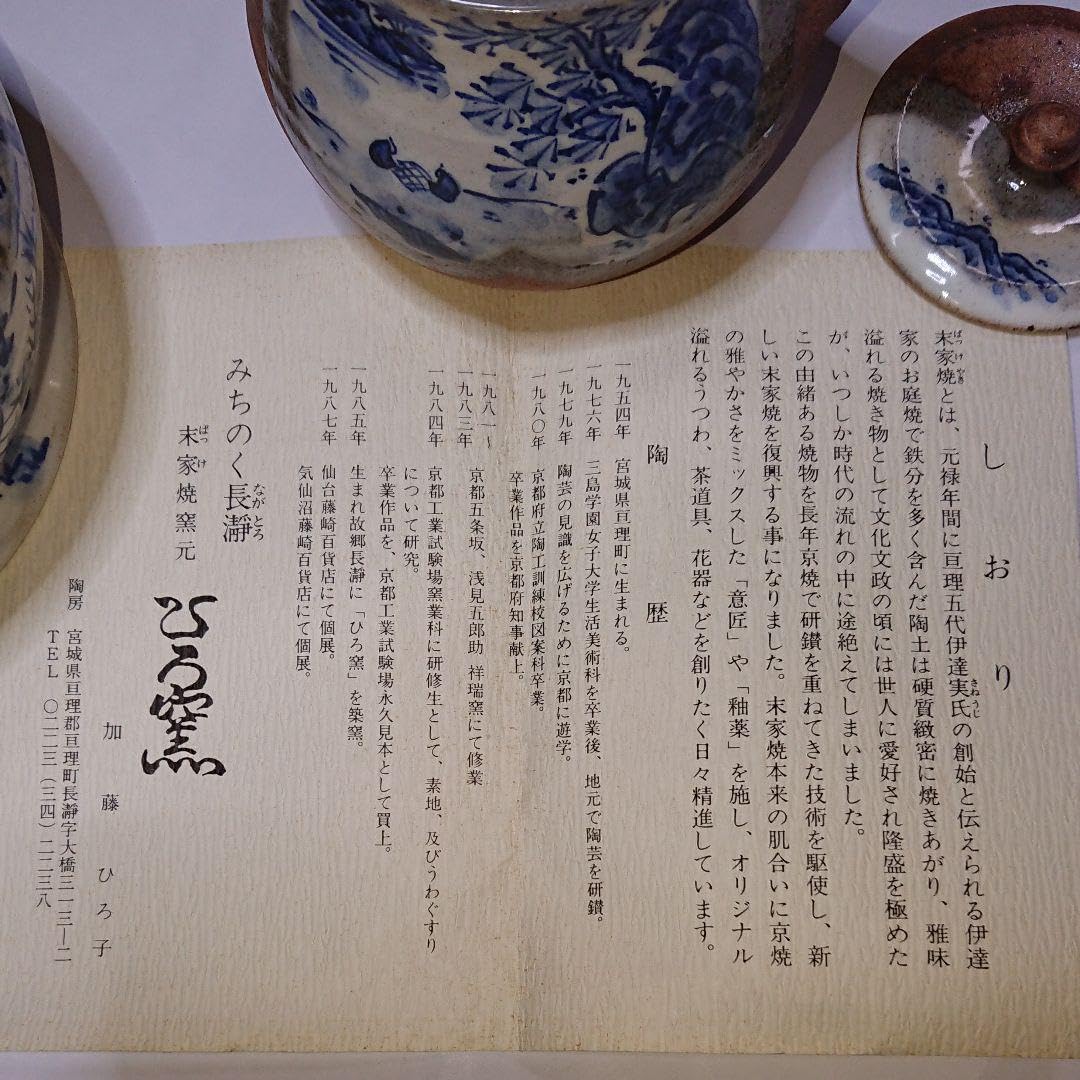 しおり
末家焼とは、元禄年間に亘理五代伊達実氏の創始と伝えられる伊達
家のお庭焼で鉄分を多く含んだ陶土は硬質緻密に焼きあがり、雅味
溢れる焼き物として文化文政の頃には世人に愛好され隆盛を極めた
が、いつしか時代の流れの中に途絶えてしまいました。
この由緒ある焼物を長年京焼で研鑽を重ねてきた技術を駆使し、新
しい末家焼を復興する事になりました。末家焼本来の肌合いに京焼
の雅やかさをミックスした「意匠」や「釉薬」を施し、オリジナル
溢れるうつわ、茶道具、花器などを創りたく日々精進しています。
陶歴
一九五四年 宮城県亘理町に生まれる。
一九七六年 三島学園女子大学生活美術科を卒業後、地元で陶芸を研鑽。
一九七九年 陶芸の見識を広げるために京都に遊学。
一九八〇年 京都府立陶工訓練校図案科卒業。
卒業作品を京都府知事献上。
一九八一〜
一九八三年 京都五条坂、浅見五郎助 祥瑞窯にて修業
一九八四年 京都工業試験場窯業科に研修生として、素地、及びうわぐすり
について研究。
卒業作品を、京都工業試験場永久見本として買上。
一九八五年 生まれ故郷長瀞に「ひろ窯」を築窯。
一九八七年 仙台藤崎百貨店にて個展。
気仙沼藤崎百貨店にて個展。
みちのく長瀞
末家焼窯元
ひろ窯
加藤ひろ子
陶房 宮城県亘理郡亘理町長瀞字大橋三一三ー二
TEL 〇二二三(三四)二二三八